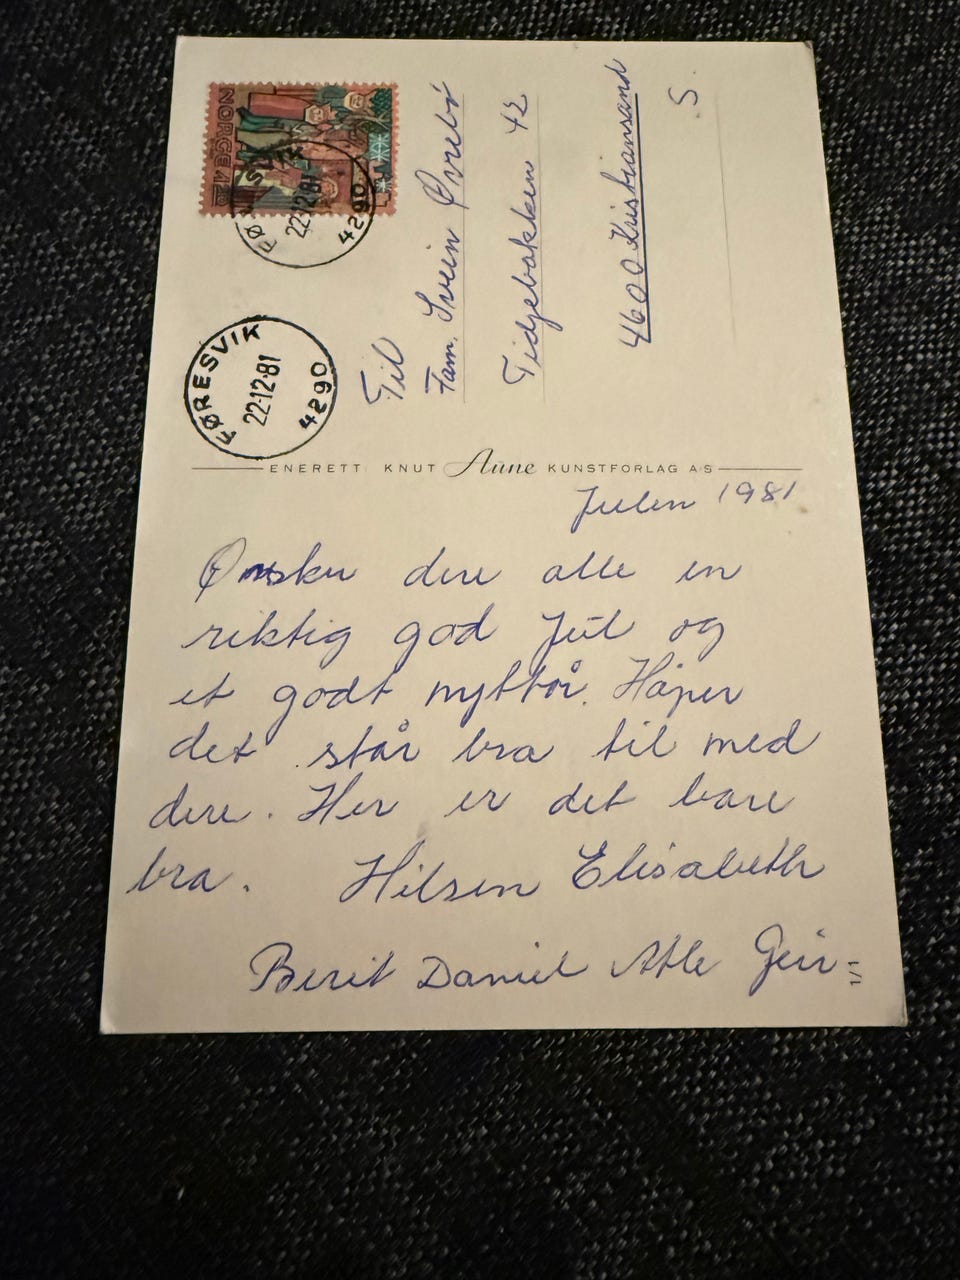 NORGE
FØRESVIK
22.12.81
4290
FØRESVIK
22.12.81
4290
Til
Fam. Svein Øvrebø
Tidjebakken 42
4600 Kristiansand
S
ENERETT KNUT Aune KUNSTFORLAG A/S
Julen 1981
Ønsker dere alle en
riktig god Jul og
et godt nyttår. Håper
det står bra til med
dere. Her er det bare
bra. Hilsen Elisabeth
Berit Daniel Atle Geir
1/1